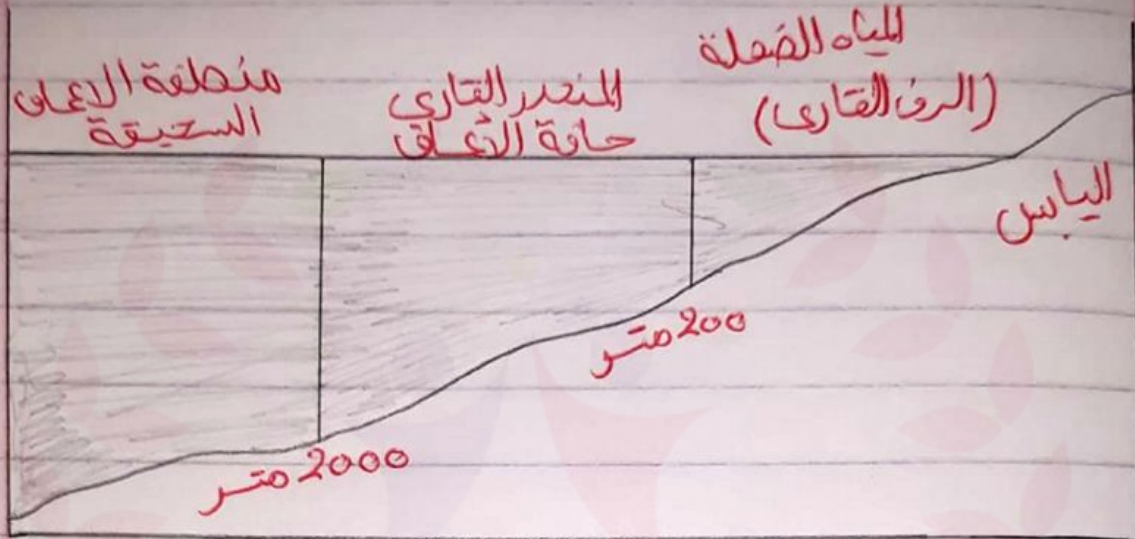 المياه الضحلة
(الرف القارى)
المنحدر القارى
حافة الأعماق
منطقة الاعماق
السحيقة
اليابس
200 متر
2000 متر